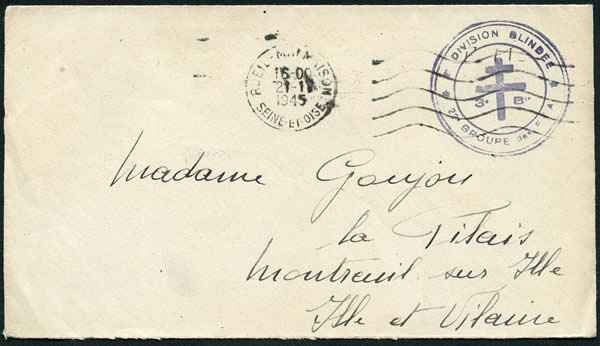 RUEIL-MALMAISON
16-00
1945
SEINE-ET-OISE
DIVISION BLINDÉE
GROUPE
Madame Goujon
la
Montreuil sur Ille
Ille et Vilaine